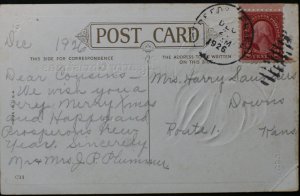 Dec 1926
POST CARD
THIS SIDE FOR CORRESPONDENCE
THE ADDRESS TO BE WRITTEN ON THIS SIDE
DEC
1926
Dear Cousins -
We wish you a
very Merry Xmas
and Happy and
Prosperous New
Year. Sincerely
Mr & Mrs J. P. Plummer
Mrs. Harry Saunders
Downs
Route 1. Kans